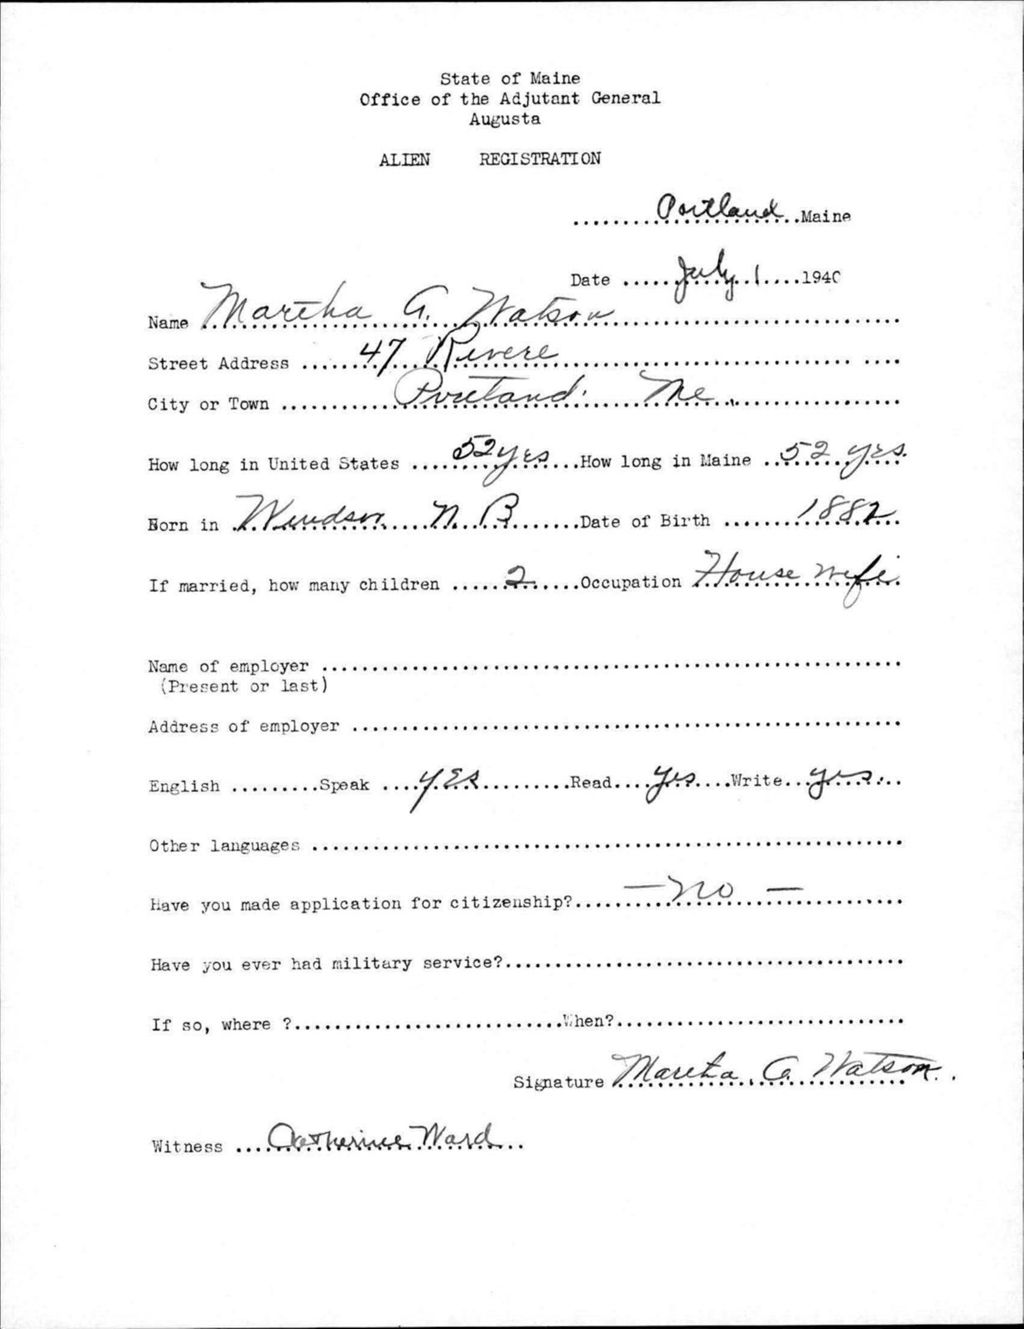 State of Maine
Office of the Adjutant General
Augusta
ALIEN REGISTRATION
Portland Maine
Date July 1 1940
Name Martha G. Watson
Street Address 47 Revere
City or Town Portland. Me.
How long in United States 52 yrs How long in Maine 52 yrs.
Born in Windsor N. B Date of Birth 1882
If married, how many children 2 Occupation House wife
Name of employer
(Present or last)
Address of employer
English Speak yes Read yes Write yes
Other languages
Have you made application for citizenship? — no —
Have you ever had military service?
If so, where ? When?
Signature Martha G. Watson.
Witness Catherine Ward